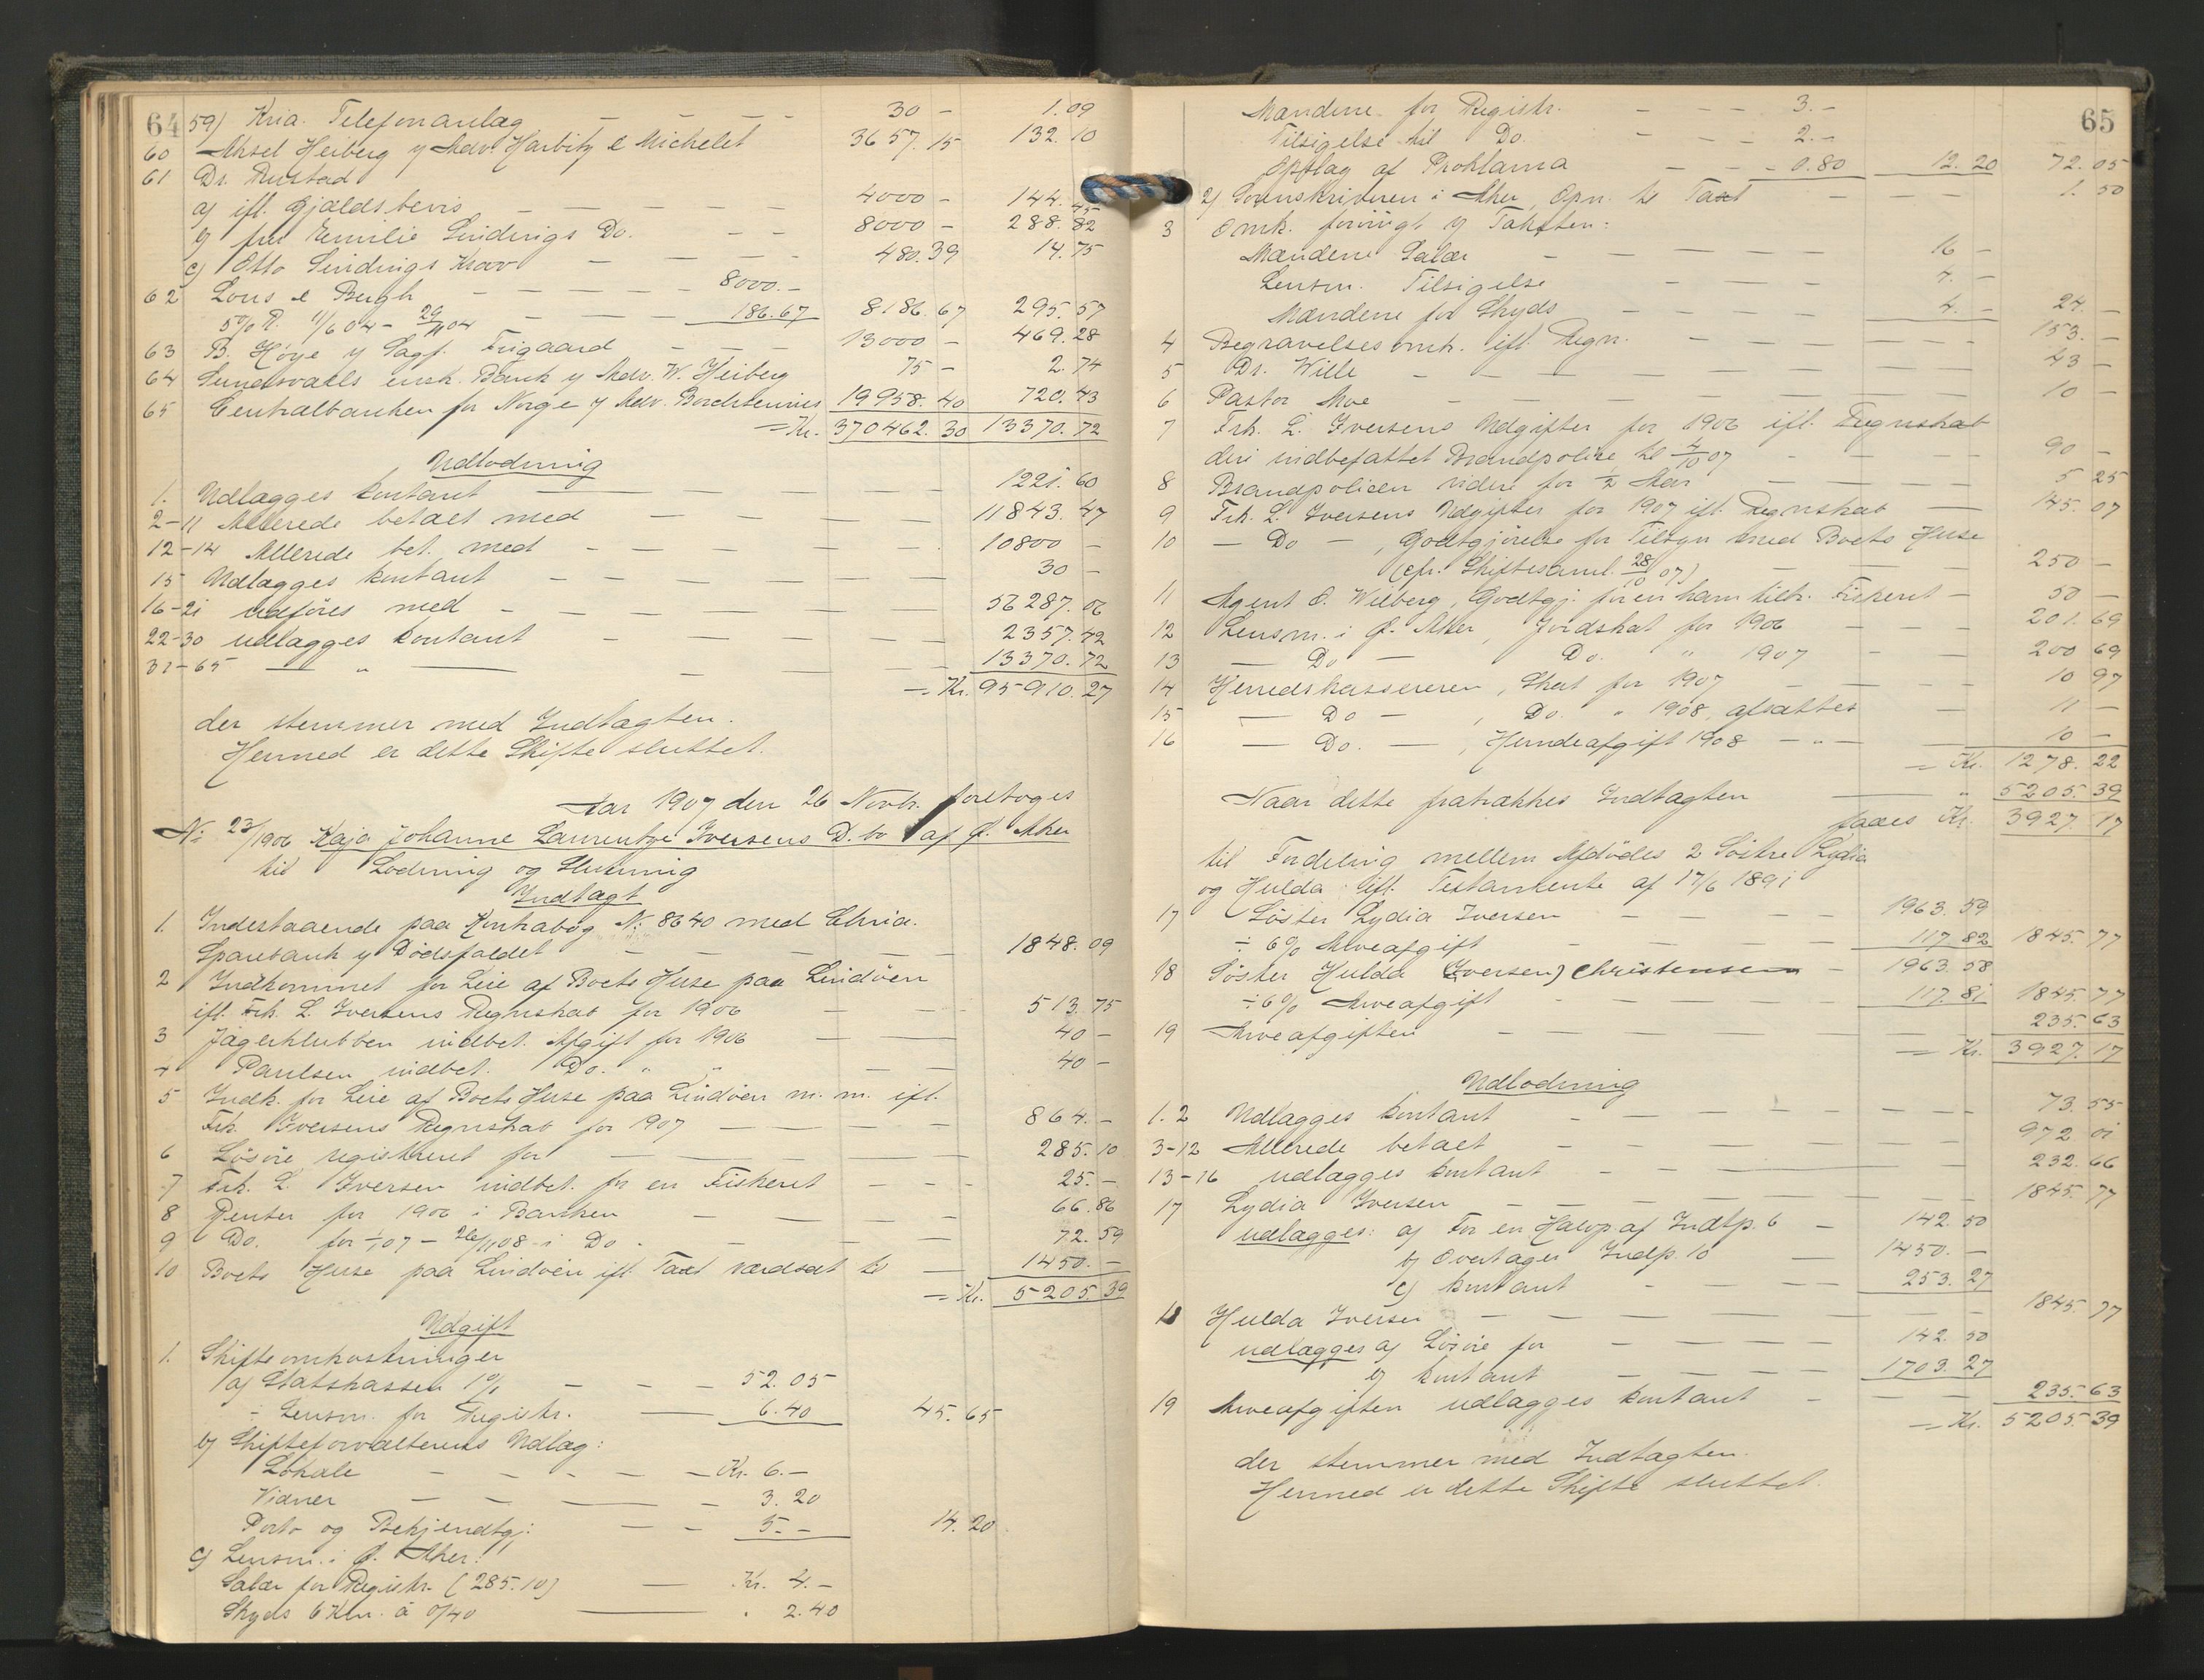 64 59) Kria. Telefonanlæg — — — — 30 - 1.09
60 Aksel Heiberg v Adv. Harbitz & Michelet 3657.15 132.10
61 Dr. Rustad
a) ifl. Gjældsbevis — — — — — 4000 - 144.45
b) fru Emilie Sindings Do. — — 8000 - 288.82
c) Otto Sindings Krav — — — — 480.39 14.75
62 Lous & Bugh — — — — — 8000.-
5% R. 11/6 04 - 29/11 04 — — — 186.67 8186.67 295.57
63 B. Høye v Sagf. Frigaard — — — 13000 - 469.28
64 Sundsvalls ensk. Bank v Adv. W. Heiberg 75 - 2.74
65 Centralbanken for Norge v Adv. Borchsenius 19958.40 720.43
= Kr. 370462.30 13370.72
Udlodning
1. Udlægges kontant — — — — — 1221.60
2-11 Allerede betalt med — — — — 11843.47
12-14 Allerede bet. med — — — — — 10800 -
15 Udlægges kontant — — — — — 30 -
16-21 udføres med — — — — — 56287.06
22-30 udlægges kontant — — — — — 2357.42
31-65 — " — — — 13370.72
= Kr. 95910.27
der stemmer med Indtægten.
Hermed er dette Skifte sluttet.
Aar 1907 den 26 Novbr. foretoges
No 23/1906 Kaja Johanne Laurentze Iversens D.bo af Ø. Aker
til Lodning og Slutning
Indtægt
1. Indestaaende paa Kontrabog No 8640 med Chria.
Sparebank v Dødsfaldet — — — — — 1848.09
2 Indkommet for Leie af Boets Huse paa Lindøen
ifl. Frk. L. Iversens Regnskab for 1906 — — 513.75
3 Jægerklubben indbet. Afgift for 1906 — — 40 -
4 Paulsen indbet. Do. " " — — 40 -
5 Indk. for Leie af Boets Huse paa Lindøen m. m. ifl.
Frk. Iversens Regnskab for 1907 — — — 864.-
6 Løsøre registreret for — — — — 285.10
7 Frk. L. Iversen indbet. for en Fiskeret — — — 25.-
8 Renter for 1906 i Banken — — — — 66.86
9 Do. for 1/1 07 - 26/11 08 i Do. — — — 72.59
10 Boets Huse paa Lindøen ifl. Taxt værdsat til — 1450.-
= Kr. 5205.39
Udgift
1. Skifteomkostninger
a) Statskassen 1% — — — 52.05
÷ Lensm. for Registr. — — 6.40 45.65
b) Skifteforvalterens Udlæg:
Lokale — — — — — Kr. 6.-
Vidner — — — — 3.20
Porto og Bekjendtgj: — — 5.- 14.20
c) Lensm. i Ø. Aker:
Salær for Registr. (285.10) — Kr. 4.-
Skyds 6 Klm. à 0/40 — " 2.40
65
Mændene for Registr. — — — 3.-
Tilsigelse til Do. — — — 2.-
Opslag af Proklama — — 0.80 12.20 72.05
2) Sorenskriveren i Aker, Opn. til Taxt — — — 1.50
3 Omk. forøvrigt v Taksten:
Mændene Salær — — — — — 16 -
Lensm. Tilsigelse — — — — 4. -
Mændene for Skyds — — — — — 4. - 24. -
4 Begravelsesomk. ifl. Regn. — — — — — 153. -
5 Dr. Wille — — — — — — — 43 -
6 Pastor Moe — — — — — — 10 -
7 Frk. L. Iversens Udgifter for 1906 ifl. Regnskab
deri indbefattet Brandpolice til 4/10 07 — — — 90 -
8 Brandpolicen videre for 1/2 Aar — — — — 5 25
9 Frk. L. Iversens Udgifter for 1907 ifl. Regnskab — 145.07
10 — Do —, Godtgjørelse for Tilsyn med Boets Huse
(cfr. Skiftesaml. 28/10 07) — — — 250 -
11 Agent O. Wiborg, Godtgj. for en ham tilh. Fiskeret — 50 -
12 Lensm. i Ø. Aker, Jordskat for 1906 — — — 201.69
13 — Do — Do. " 1907 — — 200 69
14 Herredskassereren, Skat for 1907 — — — 10 97
15 — Do —, Do. " 1908, afsættes — 11 -
16 — Do. —, Hundeafgift 1908 — " — 10 -
= Kr. 1278.22
Naar dette fratrækkes Indtægten — " 5205.39
faaes Kr. 3927.17
til Fordeling mellem Afdødes 2 Søstre Lydia
og Hulda ifl. Testamente af 17/6 1891
17 Søster Lydia Iversen — — — — 1963.59
÷ 6% Arveafgift — — — 117.82 1845.77
18 Søster Hulda (Iversen) Christensen — 1963.58
÷ 6% Arveafgift — — — — 117.81 1845.77
19 Arveafgiften — — — — — 235.63
= Kr. 3927.17
Udlodning
1.2 Udlægges kontant — — — — — 73.55
3-12 Allerede betalt — — — — — 972.01
13-16 udlægges kontant — — — — — 232.66
17 Lydia Iversen — — — — — 1845.77
udlægges: a) For en Halvp. af Indtp. 6 — 142.50
b) Overtager Indtp. 10 — 1450. -
c) kontant — — — 253.27
18 Hulda Iversen — — — — — 1845.77
udlægges a) Løsøre for — — — — 142.50
b) kontant — — — — 1703.27
19 Arveafgiften udlægges kontant — — — 235.63
= Kr. 5205.39
der stemmer med Indtægten.
Hermed er dette Skifte sluttet.